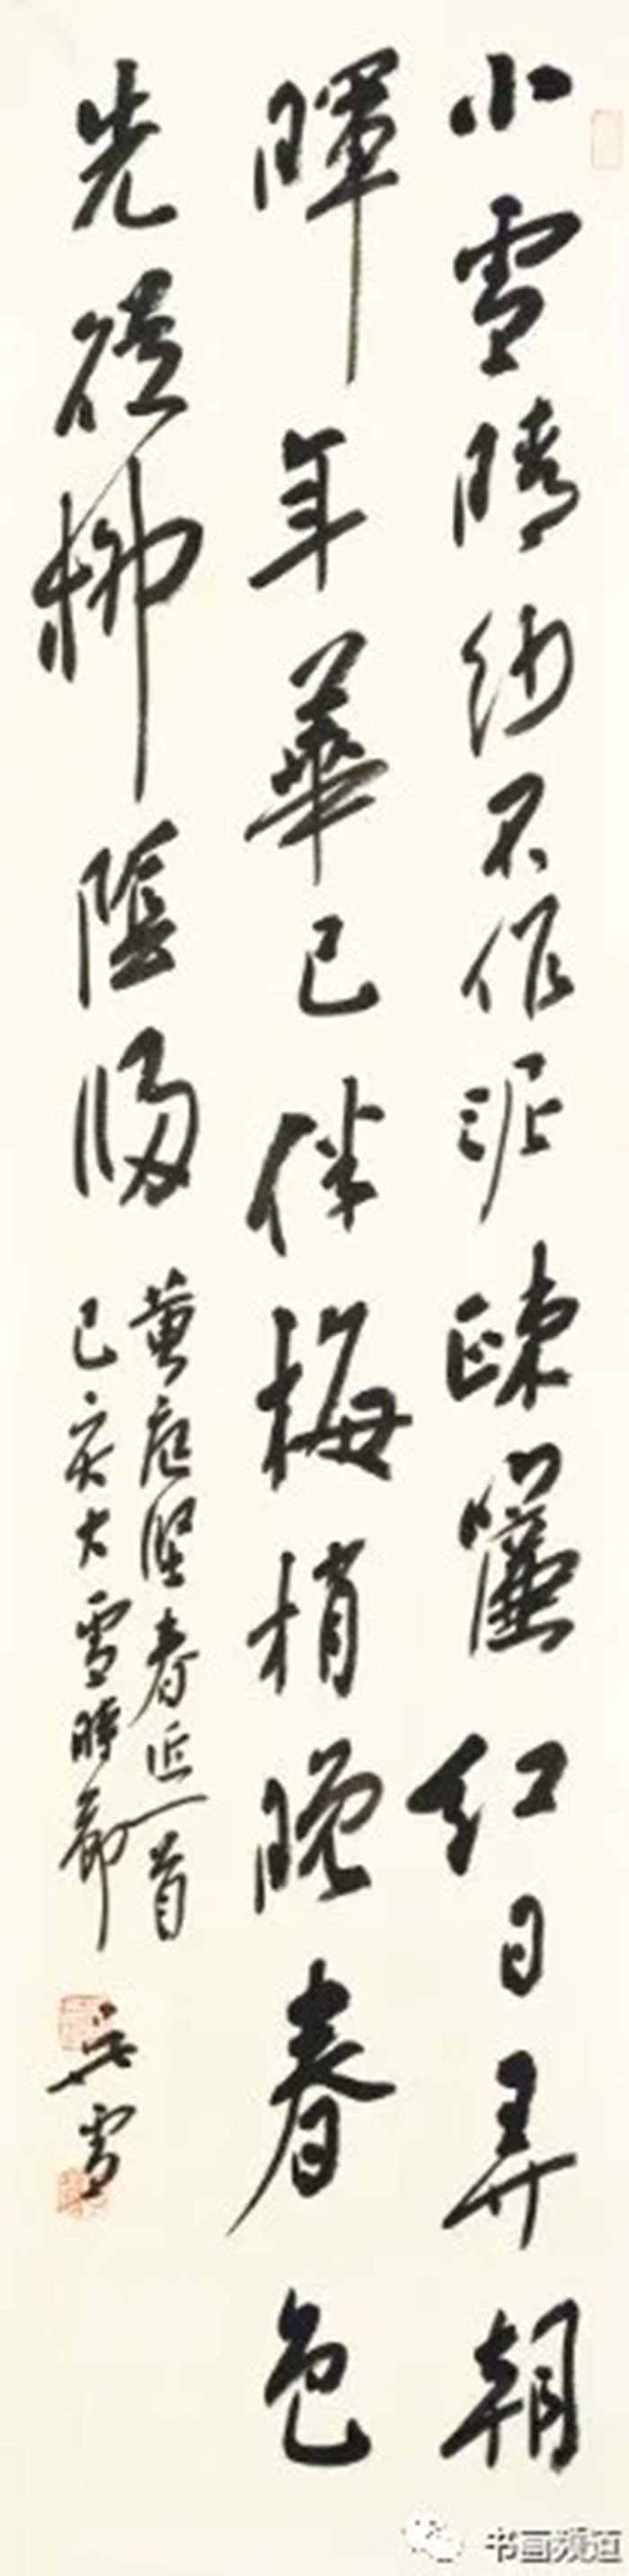 小雪晴沙不作泥疎簾紅日弄朝
暉年華已伴梅梢晚春色
先從柳陰歸
黄庭堅春近一首
己亥大雪時節
吴雪
书画频道